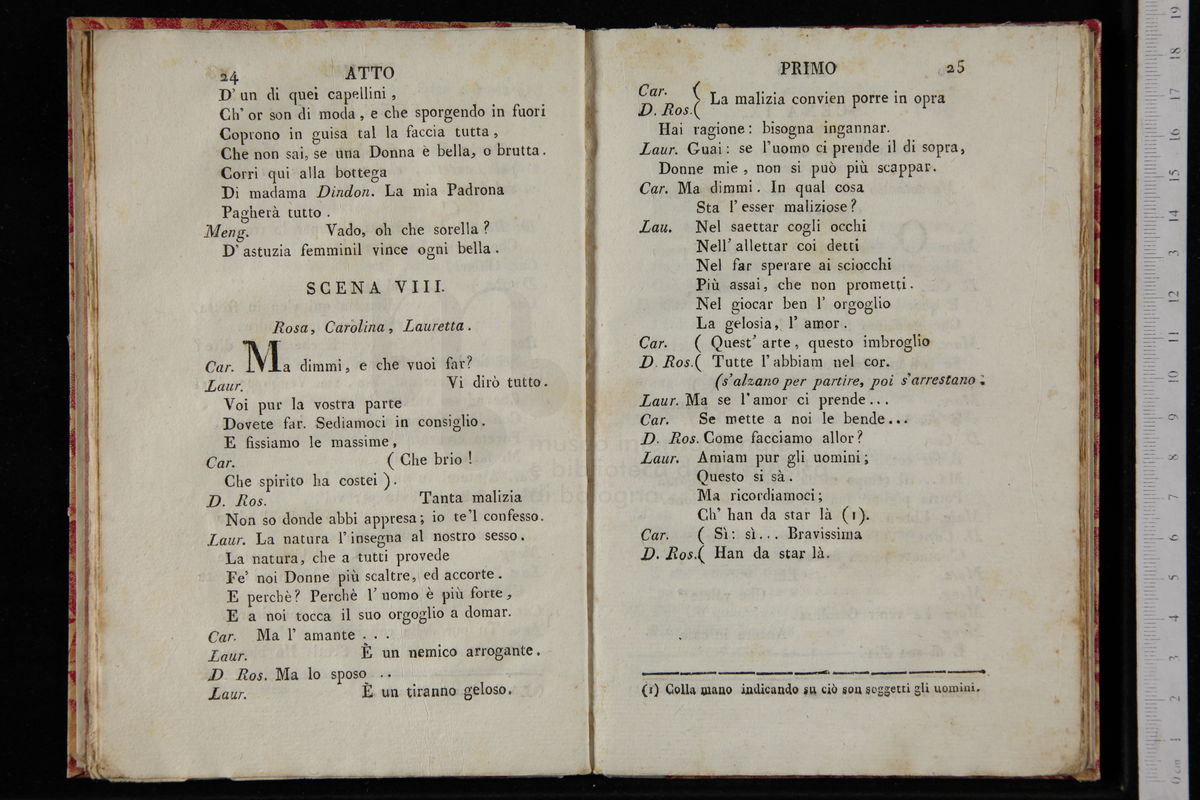 24 ATTO
D' un di quei capellini,
Ch' or son di moda, e che sporgendo in fuori
Coprono in guisa tal la faccia tutta,
Che non sai, se una Donna è bella, o brutta.
Corri qui alla bottega
Di madama Dindon. La mia Padrona
Pagherà tutto.
Meng. Vado, oh che sorella?
D' astuzia femminil vince ogni bella.
SCENA VIII.
Rosa, Carolina, Lauretta.
Car. Ma dimmi, e che vuoi far?
Laur. Vi dirò tutto.
Voi pur la vostra parte
Dovete far. Sediamoci in consiglio.
E fissiamo le massime,
Car. ( Che brio!
Che spirito ha costei ).
D. Ros. Tanta malizia
Non so donde abbi appresa; io te'l confesso.
Laur. La natura l'insegna al nostro sesso.
La natura, che a tutti provede
Fe' noi Donne più scaltre, ed accorte.
E perchè? Perchè l' uomo è più forte,
E a noi tocca il suo orgoglio a domar.
Car. Ma l' amante . . .
Laur. È un nemico arrogante.
D Ros. Ma lo sposo ..
Laur. È un tiranno geloso.
PRIMO 25
Car. (
D. Ros.( La malizia convien porre in opra
Hai ragione: bisogna ingannar.
Laur. Guai: se l'uomo ci prende il di sopra,
Donne mie, non si può più scappar.
Car. Ma dimmi. In qual cosa
Sta l'esser maliziose?
Lau. Nel saettar cogli occhi
Nell' allettar coi detti
Nel far sperare ai sciocchi
Più assai, che non prometti.
Nel giocar ben l' orgoglio
La gelosia, l' amor.
Car. ( Quest' arte, questo imbroglio
D. Ros.( Tutte l'abbiam nel cor.
(s'alzano per partire, poi s'arrestano.
Laur. Ma se l'amor ci prende...
Car. Se mette a noi le bende...
D. Ros. Come facciamo allor?
Laur. Amiam pur gli uomini;
Questo si sà.
Ma ricordiamoci;
Ch' han da star là (1).
Car. ( Sì: sì... Bravissima
D. Ros.( Han da star là.
(1) Colla mano indicando su ciò son soggetti gli uomini.